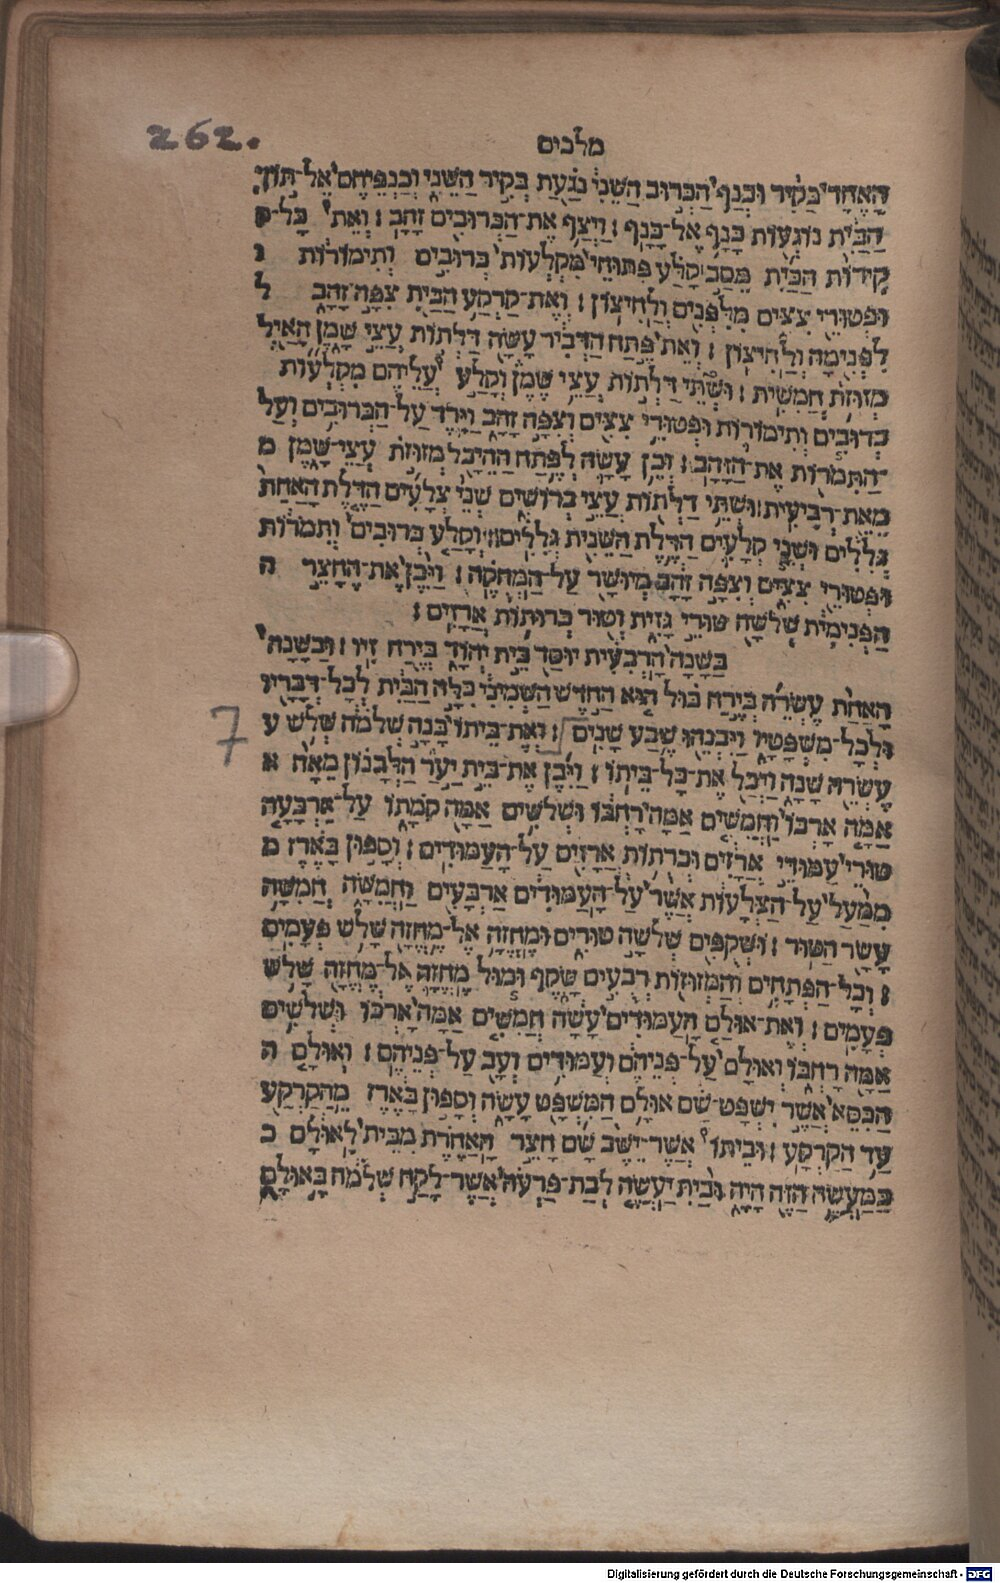 262.
מלכים
הָאֶחָד בַּקִּיר וּכְנַף הַכְּרוּב הַשֵּׁנִי נֹגַעַת בַּקִּיר הַשֵּׁנִי וְכַנְפֵיהֶם אֶל־תּוֹךְ
הַבַּיִת נוֹגְעוֹת כָּנָף אֶל־כָּנָף׃ וַיְצַף אֶת־הַכְּרוּבִים זָהָב׃ וְאֵת כָּל־ק
קִירוֹת הַבַּיִת מֵסַב קָלַע פִּתּוּחֵי מִקְלְעוֹת כְּרוּבִים וְתִימוֹרוֹת ו
וּפְטוּרֵי צִצִּים מִלִּפְנִים וְלַחִיצוֹן׃ וְאֶת־קַרְקַע הַבַּיִת צִפָּה זָהָב ל
לִפְנִימָה וְלַחִיצוֹן׃ וְאֵת פֶּתַח הַדְּבִיר עָשָׂה דַּלְתוֹת עֲצֵי שָׁמֶן הָאַיִל
מְזוּזֹת חֲמִשִׁית׃ וּשְׁתֵּי דַּלְתוֹת עֲצֵי שֶׁמֶן וְקָלַע עֲלֵיהֶם מִקְלְעוֹת
כְּרוּבִים וְתִימוֹרוֹת וּפְטוּרֵי צִצִּים וְצִפָּה זָהָב וַיָּרֶד עַל־הַכְּרוּבִים וְעַל
־הַתִּמֹרוֹת אֶת־הַזָּהָב׃ וְכֵן עָשָׂה לְפֶתַח הַהֵיכָל מְזוּזֹת עֲצֵי־שָׁמֶן מ
מֵאֵת־רְבִיעִית׃ וּשְׁתֵּי דַלְתוֹת עֲצֵי בְרוֹשִׁים שְׁנֵי צְלָעִים הַדֶּלֶת הָאַחַת
גְּלִלִים וּשְׁנֵי קְלָעִים הַדֶּלֶת הַשֵּׁנִית גְּלִלִים׃ וְקָלַע כְּרוּבִים וְתִמֹרוֹת
וּפְטוּרֵי צִצִּים וְצִפָּה זָהָב מְיוּשָּׁר עַל־הַמְּחֻקֶּה׃ וַיִּבֶן אֶת־הֶחָצֵר ה
הַפְּנִימִית שְׁלֹשָׁה טוּרֵי גָזִית וְטוּר כְּרוּתוֹת אֲרָזִים׃
בַּשָּׁנָה הָרְבִעִית יוּסַּד בֵּית יְהוָה בְּיֶרַח זִיו׃ וּבַשָּׁנָה
הָאַחַת עֶשְׂרֵה בְּיֶרַח בּוּל הוּא הַחֹדֶשׁ הַשְּׁמִינִי כָּלָה הַבַּיִת לְכָל־דְּבָרָיו
וּלְכָל־מִשְׁפָּטָיו וַיִּבְנֵהוּ שֶׁבַע שָׁנִים׃ וְאֶת־בֵּיתוֹ בָּנָה שְׁלֹמֹה שְׁלֹשׁ ע
7
עֶשְׂרֵה שָׁנָה וַיְכַל אֶת־כָּל־בֵּיתוֹ׃ וַיִּבֶן אֶת־בֵּית יַעַר הַלְּבָנוֹן מֵאָה א
אַמָּה אָרְכּוֹ וַחֲמִשִּׁים אַמָּה רָחְבּוֹ וּשְׁלֹשִׁים אַמָּה קֹמָתוֹ עַל־אַרְבָּעָה
טוּרֵי עַמּוּדֵי אֲרָזִים וּכְרֻתוֹת אֲרָזִים עַל־הָעַמּוּדִים׃ וְסָפוּן בָּאֶרֶז מ
מִמַּעַל עַל־הַצְּלָעוֹת אֲשֶׁר עַל־הָעַמּוּדִים אַרְבָּעִים וַחֲמִשָּׁה חֲמִשָּׁה
עָשָׂר הַטּוּר׃ וּשְׁקֻפִים שְׁלֹשָׁה טוּרִים וּמֶחֱזָה אֶל־מֶחֱזָה שָׁלֹשׁ פְּעָמִים
׃ וְכָל־הַפְּתָחִים וְהַמְּזוּזוֹת רְבֻעִים שָׁקֶף וּמוּל מֶחֱזָה אֶל־מֶחֱזָה שָׁלֹשׁ
פְּעָמִים׃ וְאֵת־אוּלָם הָעַמּוּדִים עָשָׂה חֲמִשִּׁים אַמָּה אָרְכּוֹ וּשְׁלֹשִׁים
אַמָּה רָחְבּוֹ וְאוּלָם עַל־פְּנֵיהֶם וְעַמּוּדִים וְעָב עַל־פְּנֵיהֶם׃ וְאוּלָם ה
הַכִּסֵּא אֲשֶׁר יִשְׁפָּט־שָׁם אוּלָם הַמִּשְׁפָּט עָשָׂה וְסָפוּן בָּאֶרֶז מֵהַקַּרְקַע
עַד הַקַּרְקָע׃ וּבֵיתוֹ אֲשֶׁר־יֵשֶׁב שָׁם חָצֵר הָאַחֶרֶת מִבֵּית לָאוּלָם כ
כַּמַּעֲשֶׂה הַזֶּה הָיָה וּבַיִת יַעֲשֶׂה לְבַת־פַּרְעֹה אֲשֶׁר־לָקַח שְׁלֹמֹה כָּאוּלָם
Digitalisierung gefördert durch die Deutsche Forschungsgemeinschaft - DFG